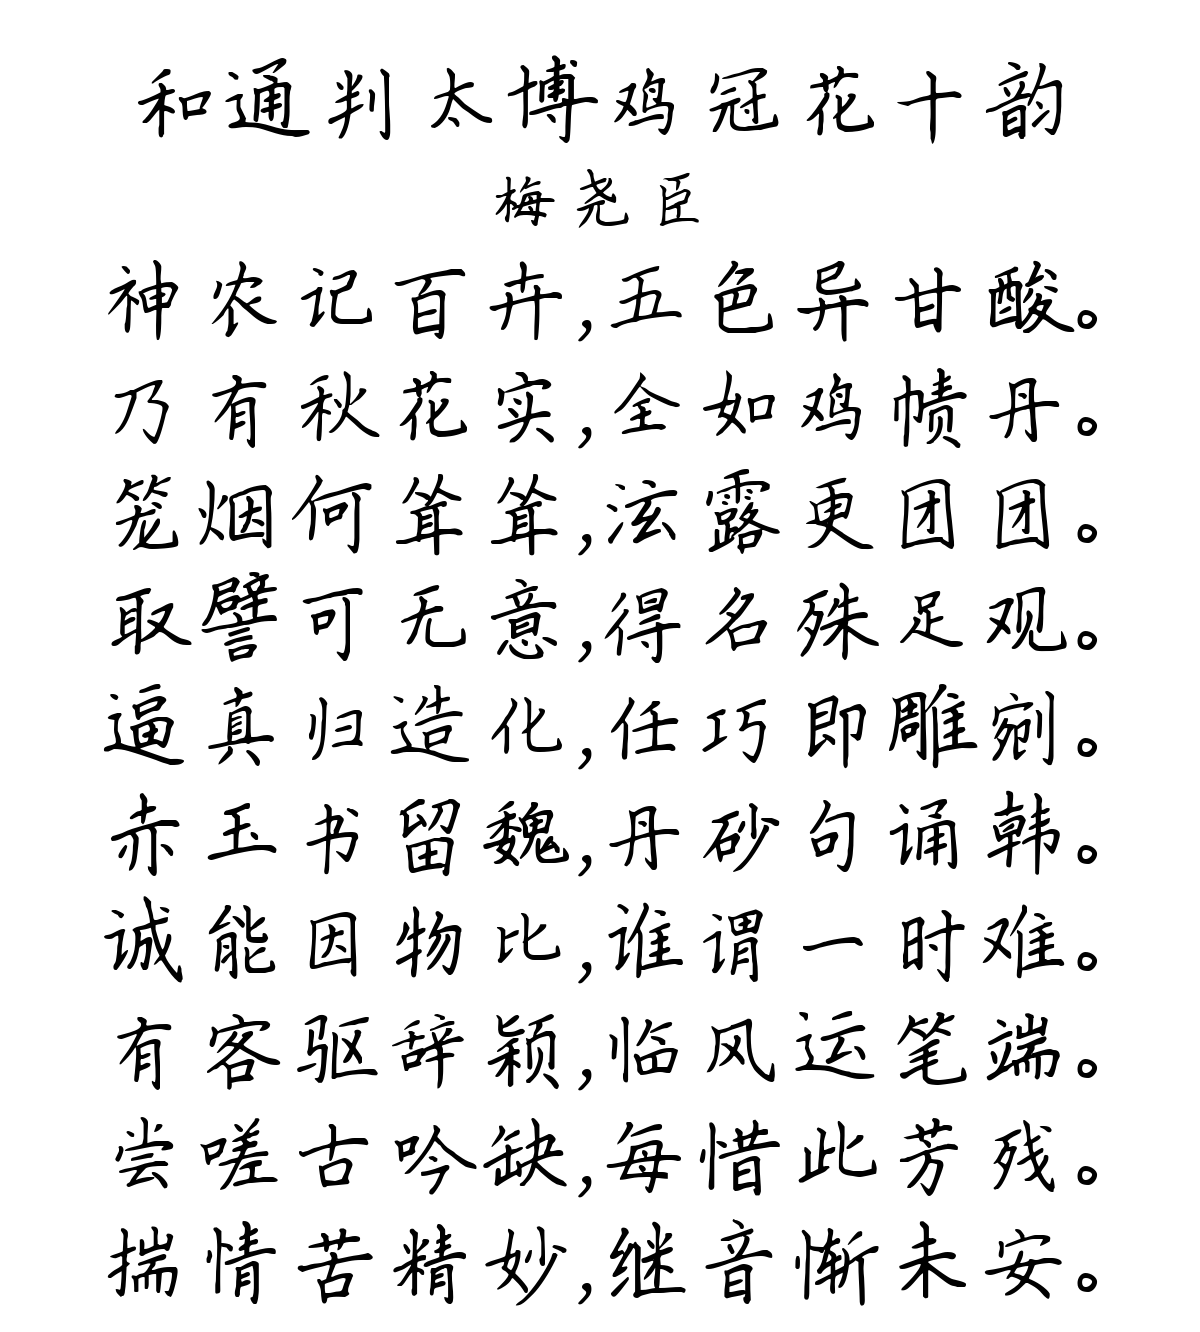 和通判太博鸡冠花十韵
梅尧臣
神农记百卉,五色异甘酸。
乃有秋花实,全如鸡帻丹。
笼烟何耸耸,泫露更团团。
取譬可无意,得名殊足观。
逼真归造化,任巧即雕剜。
赤玉书留魏,丹砂句诵韩。
诚能因物比,谁谓一时难。
有客驱辞颖,临风运笔端。
尝嗟古吟缺,每惜此芳残。
揣情苦精妙,继音惭未安。